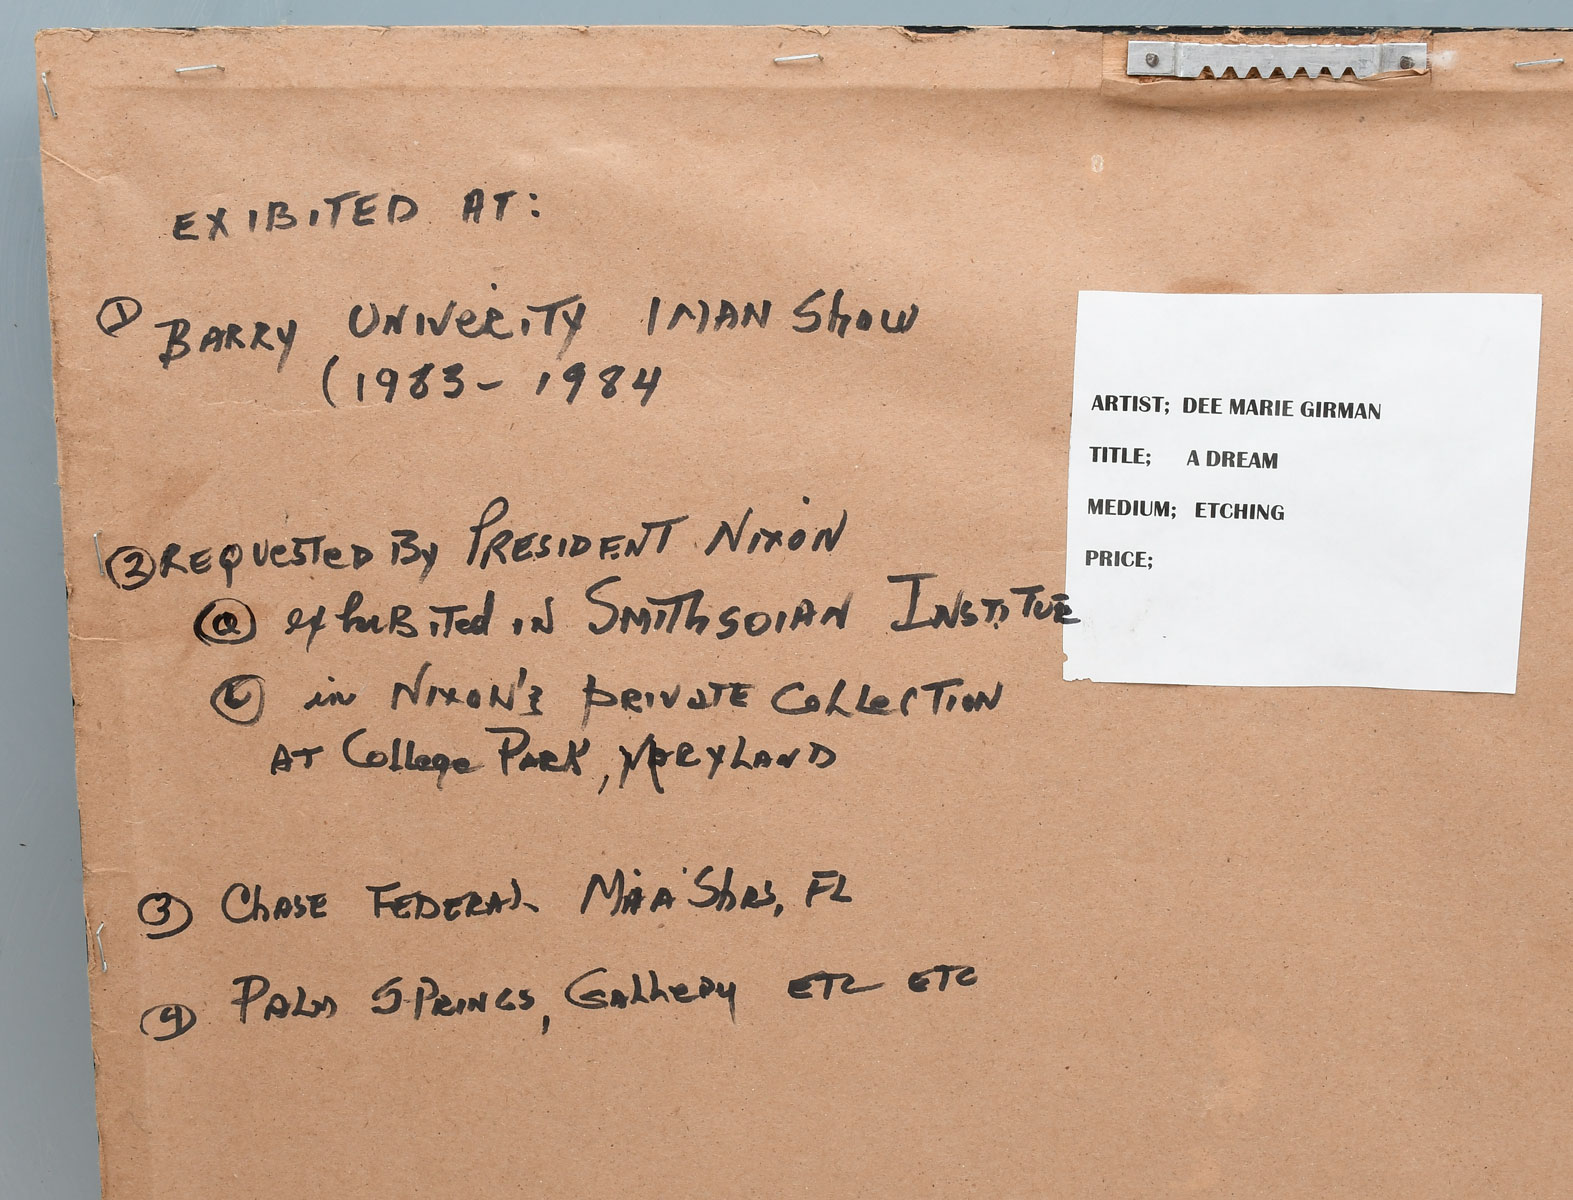 EXIBITED AT:
① BARRY UNIVERITY 1 MAN Show
(1983 - 1984
② REQUESTED By PRESIDENT NIXON
ⓐ exhibited IN SMITHSOIAN INSTITUE
ⓑ in NIXON'S PRIVATE COLLECTION
AT College PARK, MARYLAND
③ CHASE FEDERAL Mia Shrs, FL
④ PALM SPRINGS, GALLERY ETC ETC
ARTIST; DEE MARIE GIRMAN
TITLE; A DREAM
MEDIUM; ETCHING
PRICE;